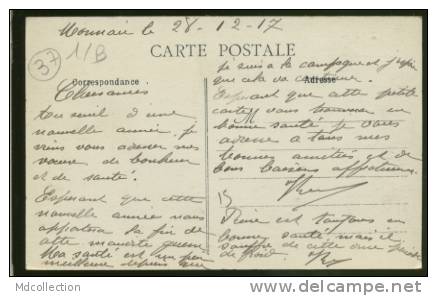 Monnaie le 28-12-17
37
11B
CARTE POSTALE
Correspondance
Adresse
Chers amies
Au seuil d'une
nouvelle année je
viens vous adresser mes
voeux de bonheur
et de santé.
Esperant que cette
nouvelle année nous
apportera la fin de
cette maudite guerre
Ma santé est un peu
meilleure depuis que
je suis a la campagne et j'espère
que cela va continuer.
Esperant que cette petite
carte vous trouvera en
bonne santé je vous
adresse a tous mes
bonnes amitiés et de
bons baisers
15
est toujours en
bonne santé mais il
souffre de cette
de froid
MCollection
www.delcampe.net